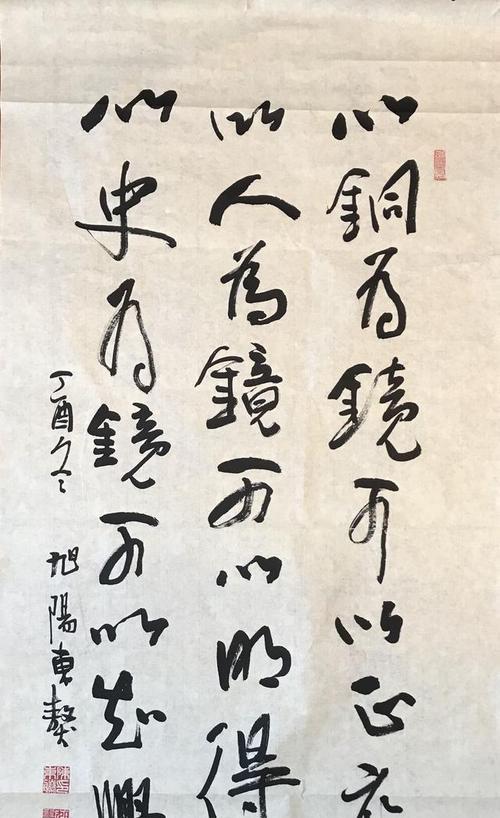 以銅為鏡可以正衣
以人為鏡可以明得
以史為鏡可以知興
丁酉冬
旭陽東